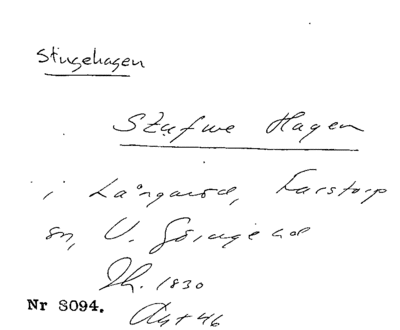 Stugehagen
Stufwe Hagen
i Långaröd, Farstorp
sn, V. Göinge hd
Th. 1830
Nr S094.